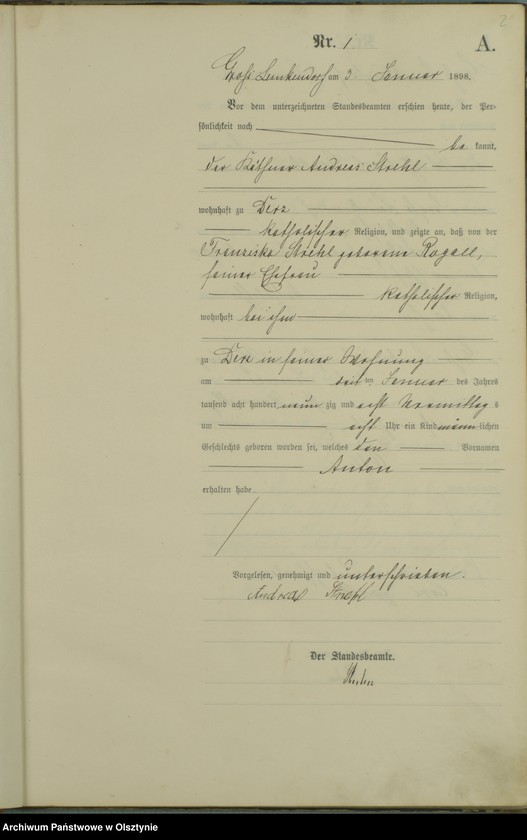 2
Nr. 1
A.
Groß Lemkendorf am 3 Januar 1898.
Vor dem unterzeichneten Standesbeamten erschien heute, der Per-
sönlichkeit nach
be kannt,
der Käthner Andreas Strehl
wohnhaft zu Derz
katholischer Religion, und zeigte an, daß von der
Franziska Strehl geborene Rogall,
seiner Ehefrau
katholischer Religion,
wohnhaft bei ihm
zu Derz in seiner Wohnung
am ten Januar des Jahres
tausend acht hundert neun zig und acht Vormittag s
um acht Uhr ein Kind männ lichen
Geschlechts geboren worden sei, welches den Vornamen
Anton
erhalten habe
Vorgelesen, genehmigt und unterschrieben.
Andreas Strehl
Der Standesbeamte.
Archiwum Państwowe w Olsztynie